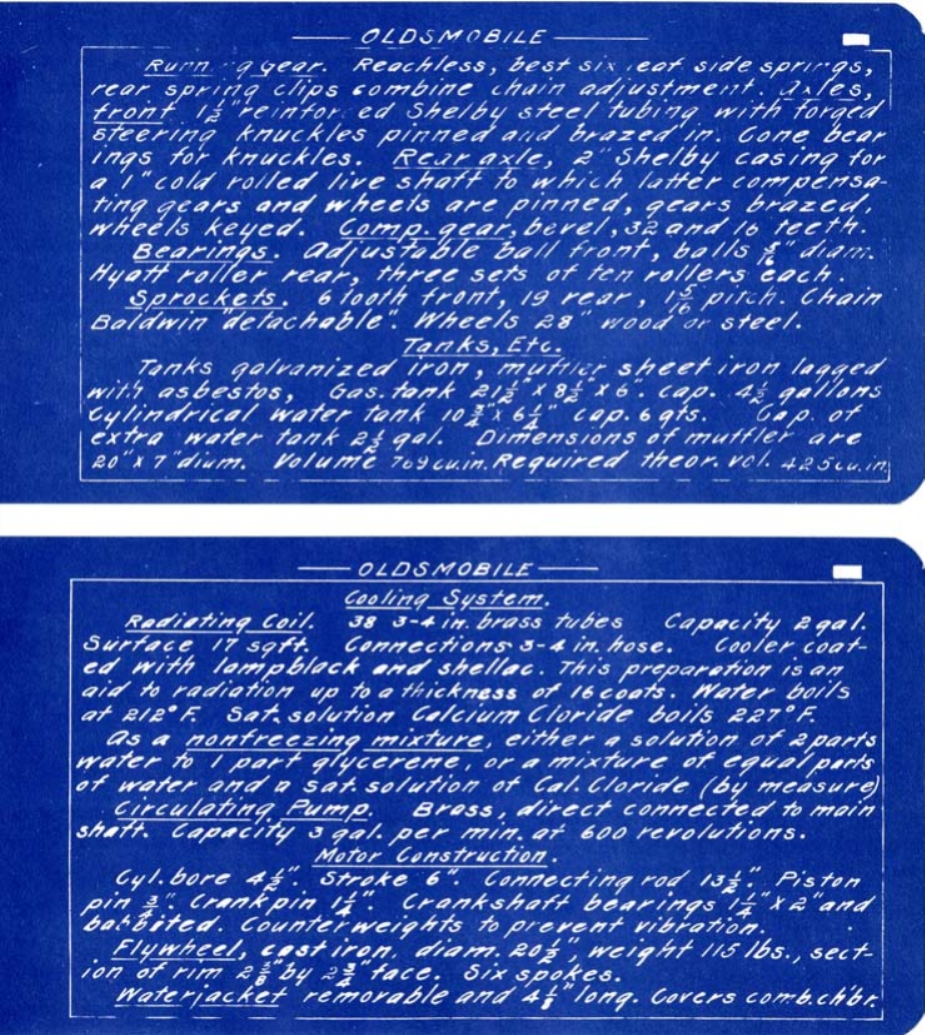 OLDSMOBILE
gear. Reachless, best six leaf side springs,
rear spring clips combine chain adjustment. Axles,
front 1½" reinforced Shelby steel tubing with forged
steering knuckles pinned and brazed in. Cone bear
ings for knuckles. Rear axle, 2" Shelby casing for
a 1" cold rolled live shaft to which latter compensa-
ting gears and wheels are pinned, gears brazed,
wheels keyed. Comp. gear, bevel, 32 and 16 teeth.
Bearings. Adjustable ball front, balls 5/16" diam.
Hyatt roller rear, three sets of ten rollers each.
Sprockets. 6 tooth front, 19 rear, 1 5/16 pitch. Chain
Baldwin "detachable". Wheels 28" wood or steel.
Tanks, Etc.
Tanks galvanized iron, muffler sheet iron lagged
with asbestos, Gas. tank 21½" x 8½" x 6". Cap. 4½ gallons
Cylindrical water tank 10¾ x 6¼" cap. 6 qts. Cap. of
extra water tank 2½ gal. Dimensions of muffler are
20" x 7" dium. Volume 769 cu.in. Required theor. vol. 425 cu.in.
OLDSMOBILE
Cooling System.
Radiating Coil. 38 3-4 in. brass tubes Capacity 2 gal.
Surface 17 sqft. Connections 3-4 in. hose. Cooler coat-
ed with lampblack and shellac. This preparation is an
aid to radiation up to a thickness of 16 coats. Water boils
at 212° F. Sat. solution Calcium Cloride boils 227° F.
As a nonfreezing mixture, either a solution of 2 parts
water to 1 part glycerene, or a mixture of equal parts
of water and a sat. solution of Cal. Cloride (by measure)
Circulating Pump. Brass, direct connected to main
shaft. Capacity 3 gal. per min. at 600 revolutions.
Motor Construction.
Cyl. bore 4½". Stroke 6". Connecting rod 13½". Piston
pin ¾". Crankpin 1¼". Crankshaft bearings 1¼" x 2" and
babbited. Counterweights to prevent vibration.
Flywheel, cast iron. diam. 20½", weight 115 lbs., sect-
ion of rim 2⅝" by 2¾" face. Six spokes.
Waterjacket removable and 4⅛" long. Covers comb. ch'br.